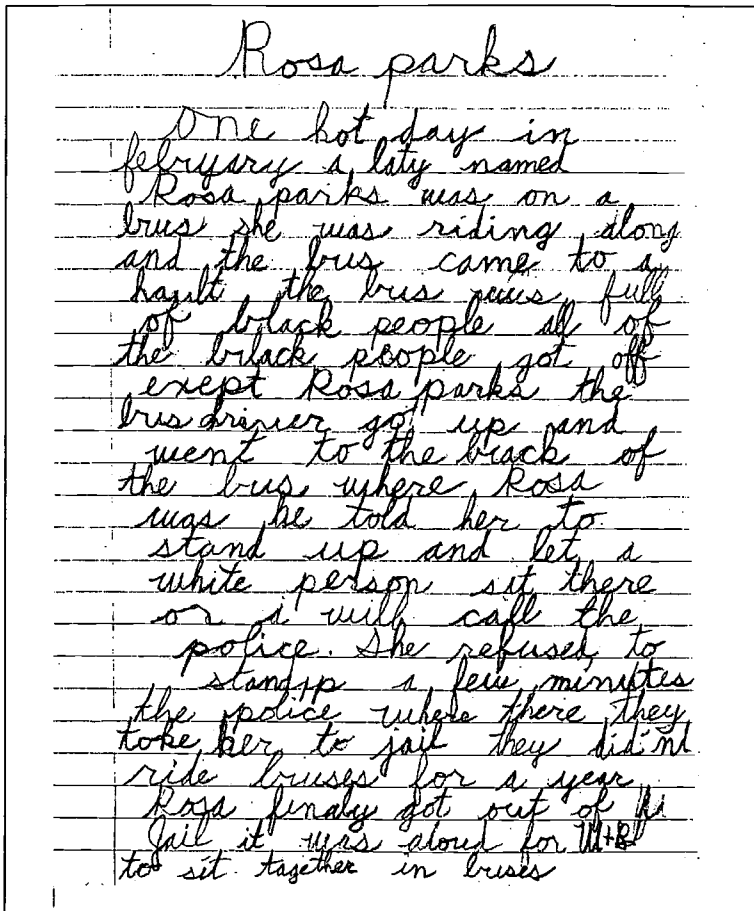 Rosa parks
One hot day in
februyary a laty named
Rosa parks was on a
brus she was riding along
and the brus came to a
hault the brus was full
of black people all of
the brlack people got off
exept Rosa parks the
brus driver got up and
went to the brack of
the brus where Rosa
was he told her to
stand up and let a
white person sit there
or i will call the
police. She refused to
standup a few minutes
the police where there they
toke her to jail they did'nt
ride bruses for a year
Rosa finaly got out of
Jail it was aloud for W+B
to sit together in bruses